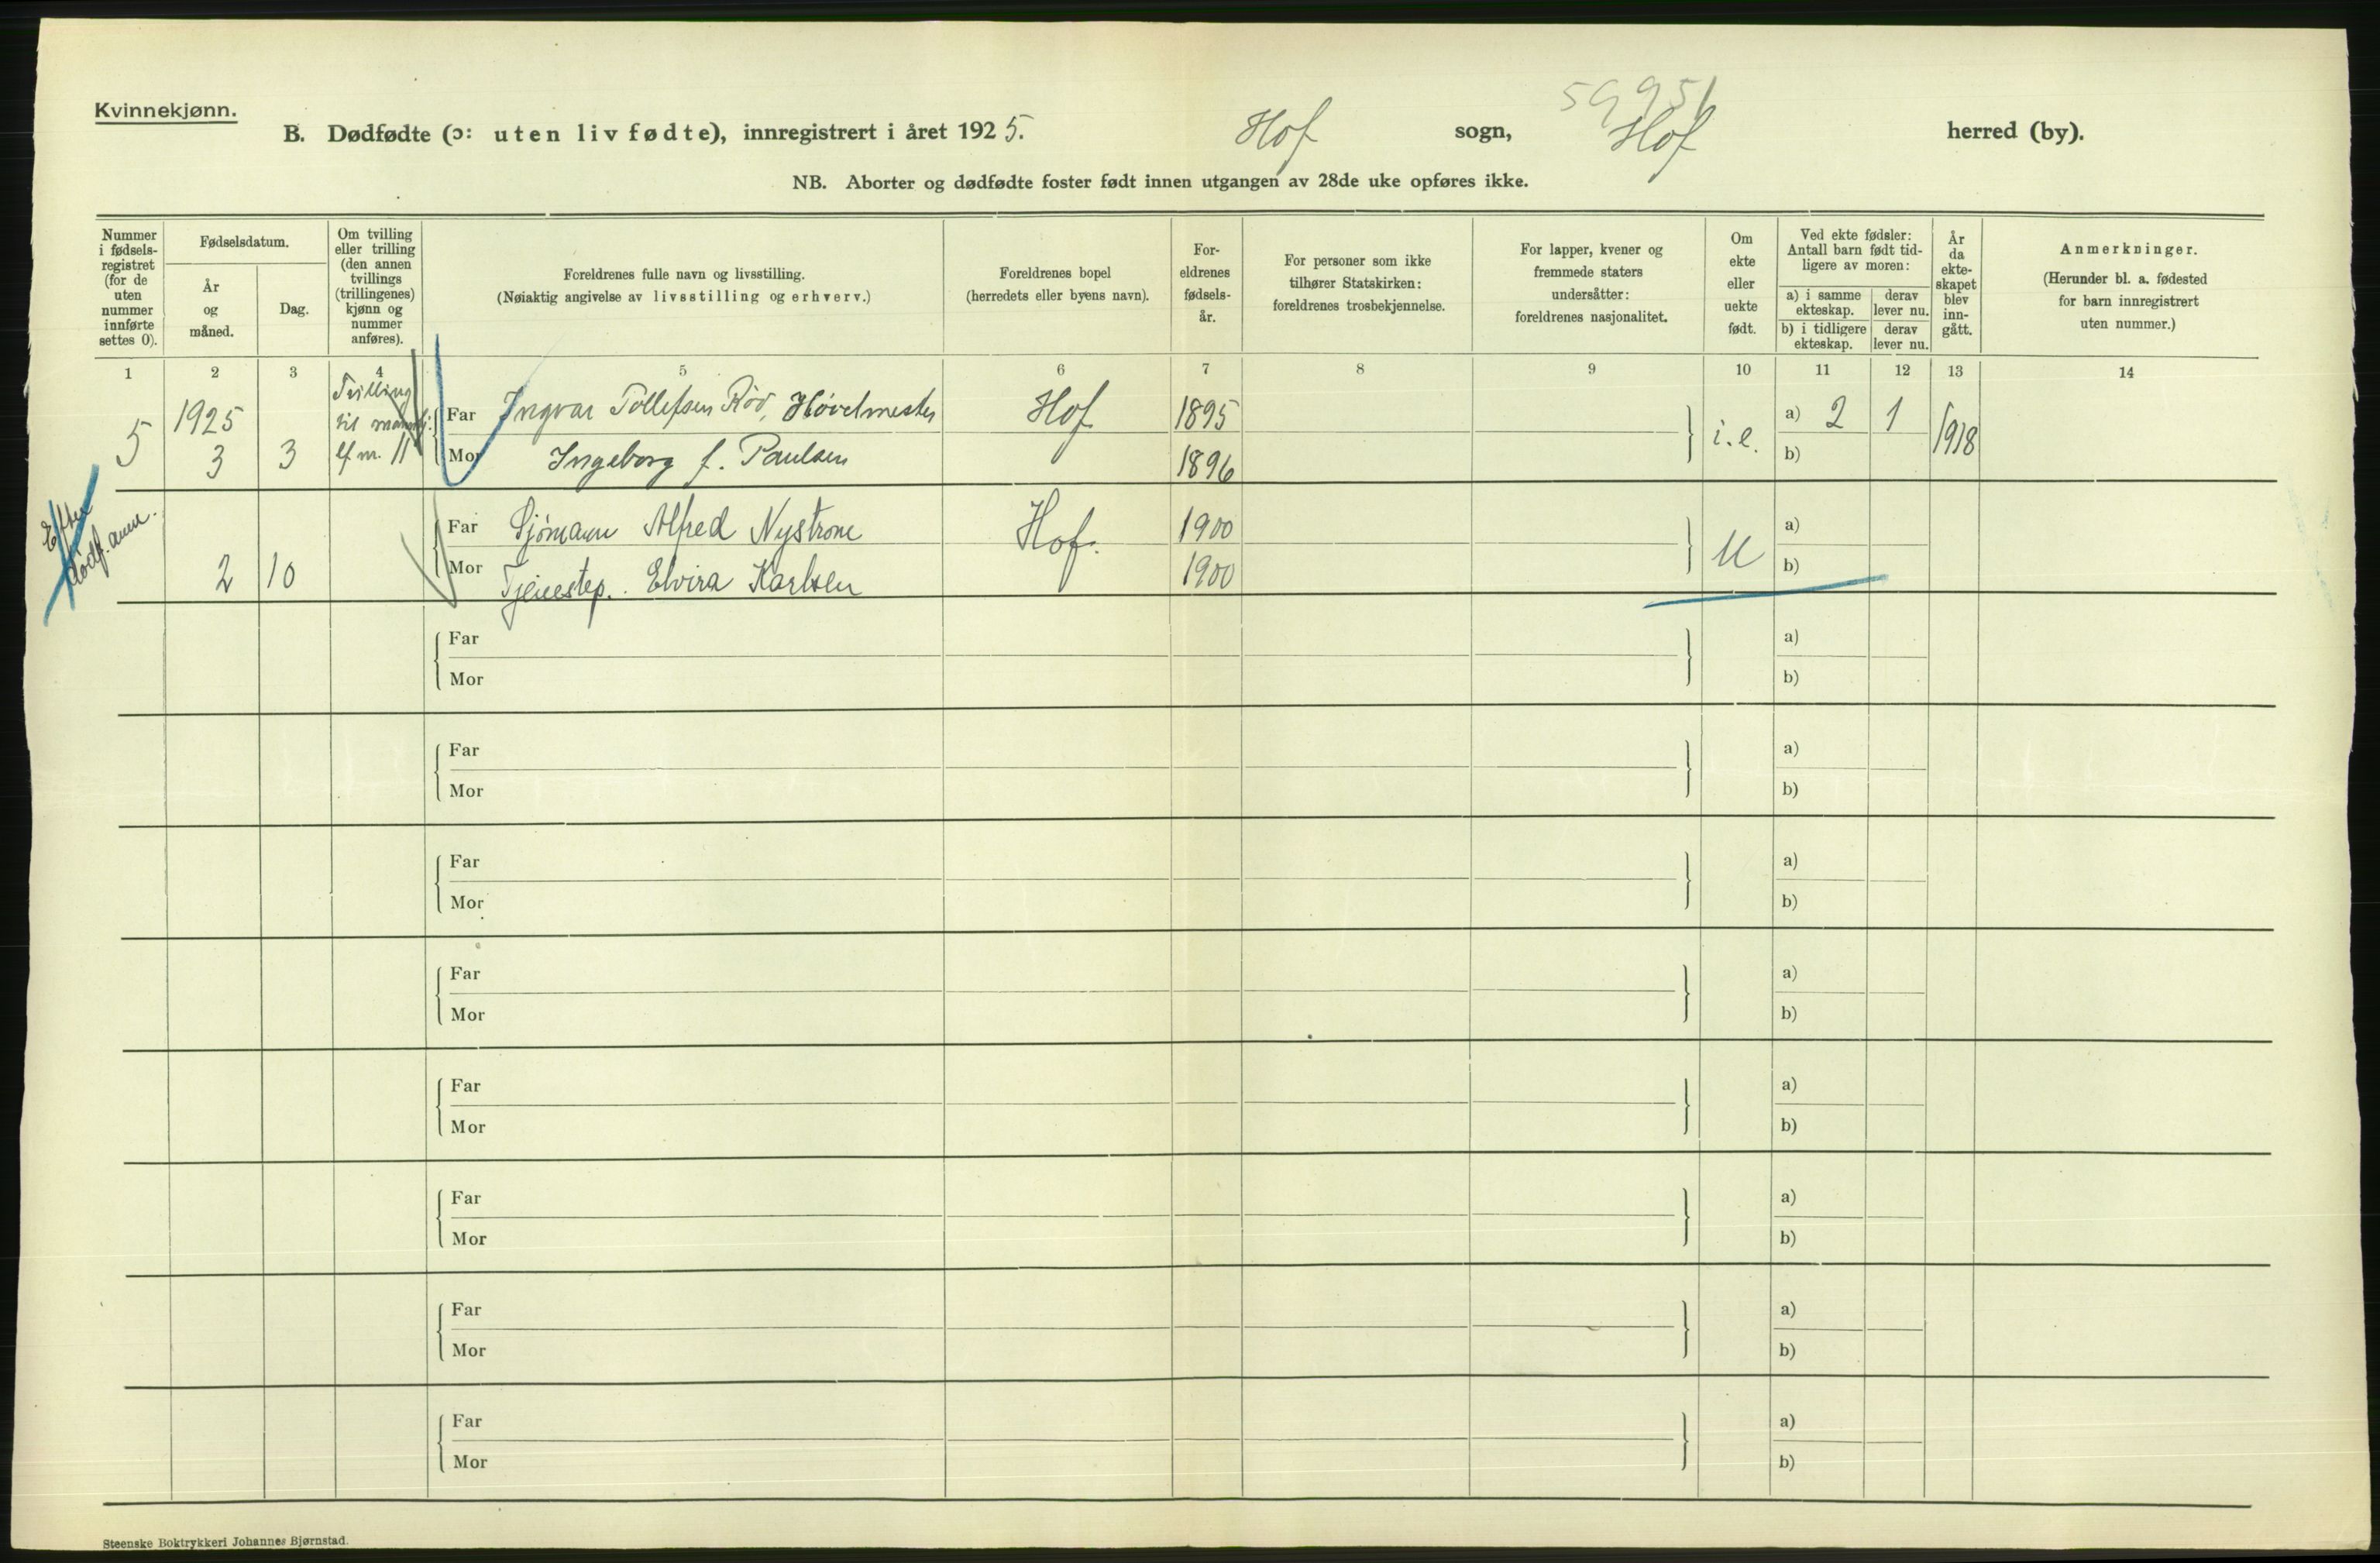 Kvinnekjønn.
5995
B. Dødfødte (ɔ: uten liv fødte), innregistrert i året 1925. Hof sogn, Hof herred (by).
NB. Aborter og dødfødte foster født innen utgangen av 28de uke opføres ikke.
Nummer i fødsels-registret (for de uten nummer innførte settes 0).
Fødselsdatum.
År og måned.
Dag.
Om tvilling eller trilling (den annen tvillings (trillingenes) kjønn og nummer anføres).
Foreldrenes fulle navn og livsstilling.
(Nøiaktig angivelse av livsstilling og erhverv.)
Foreldrenes bopel
(herredets eller byens navn).
For-eldrenes fødsels-år.
For personer som ikke tilhører Statskirken: foreldrenes trosbekjennelse.
For lapper, kvener og fremmede staters undersåtter: foreldrenes nasjonalitet.
Om ekte eller uekte født.
Ved ekte fødsler: Antall barn født tid-ligere av moren:
a) i samme ekteskap. derav lever nu.
b) i tidligere ekteskap. derav lever nu.
År da ekte-skapet blev inn-gått.
Anmerkninger.
(Herunder bl. a. fødested for barn innregistrert uten nummer.)
1 2 3 4 5 6 7 8 9 10 11 12 13 14
5 1925 3 3 Tvilling til
Far Ingvar Tollefsen Rød, Høvelmester Hof 1895 i.e. a) 2 1 1918
Mor Ingeborg f. Paulsen 1896 b)
Efter dødf. anm.
2 10
Far Sjømann Alfred Nystrøm Hof. 1900 U a)
Mor Tjenestep. Elvira Karlsen 1900 b)
Far a)
Mor b)
Far a)
Mor b)
Far a)
Mor b)
Far a)
Mor b)
Far a)
Mor b)
Far a)
Mor b)
Far a)
Mor b)
Far a)
Mor b)
Steenske Boktrykkeri Johannes Bjørnstad.